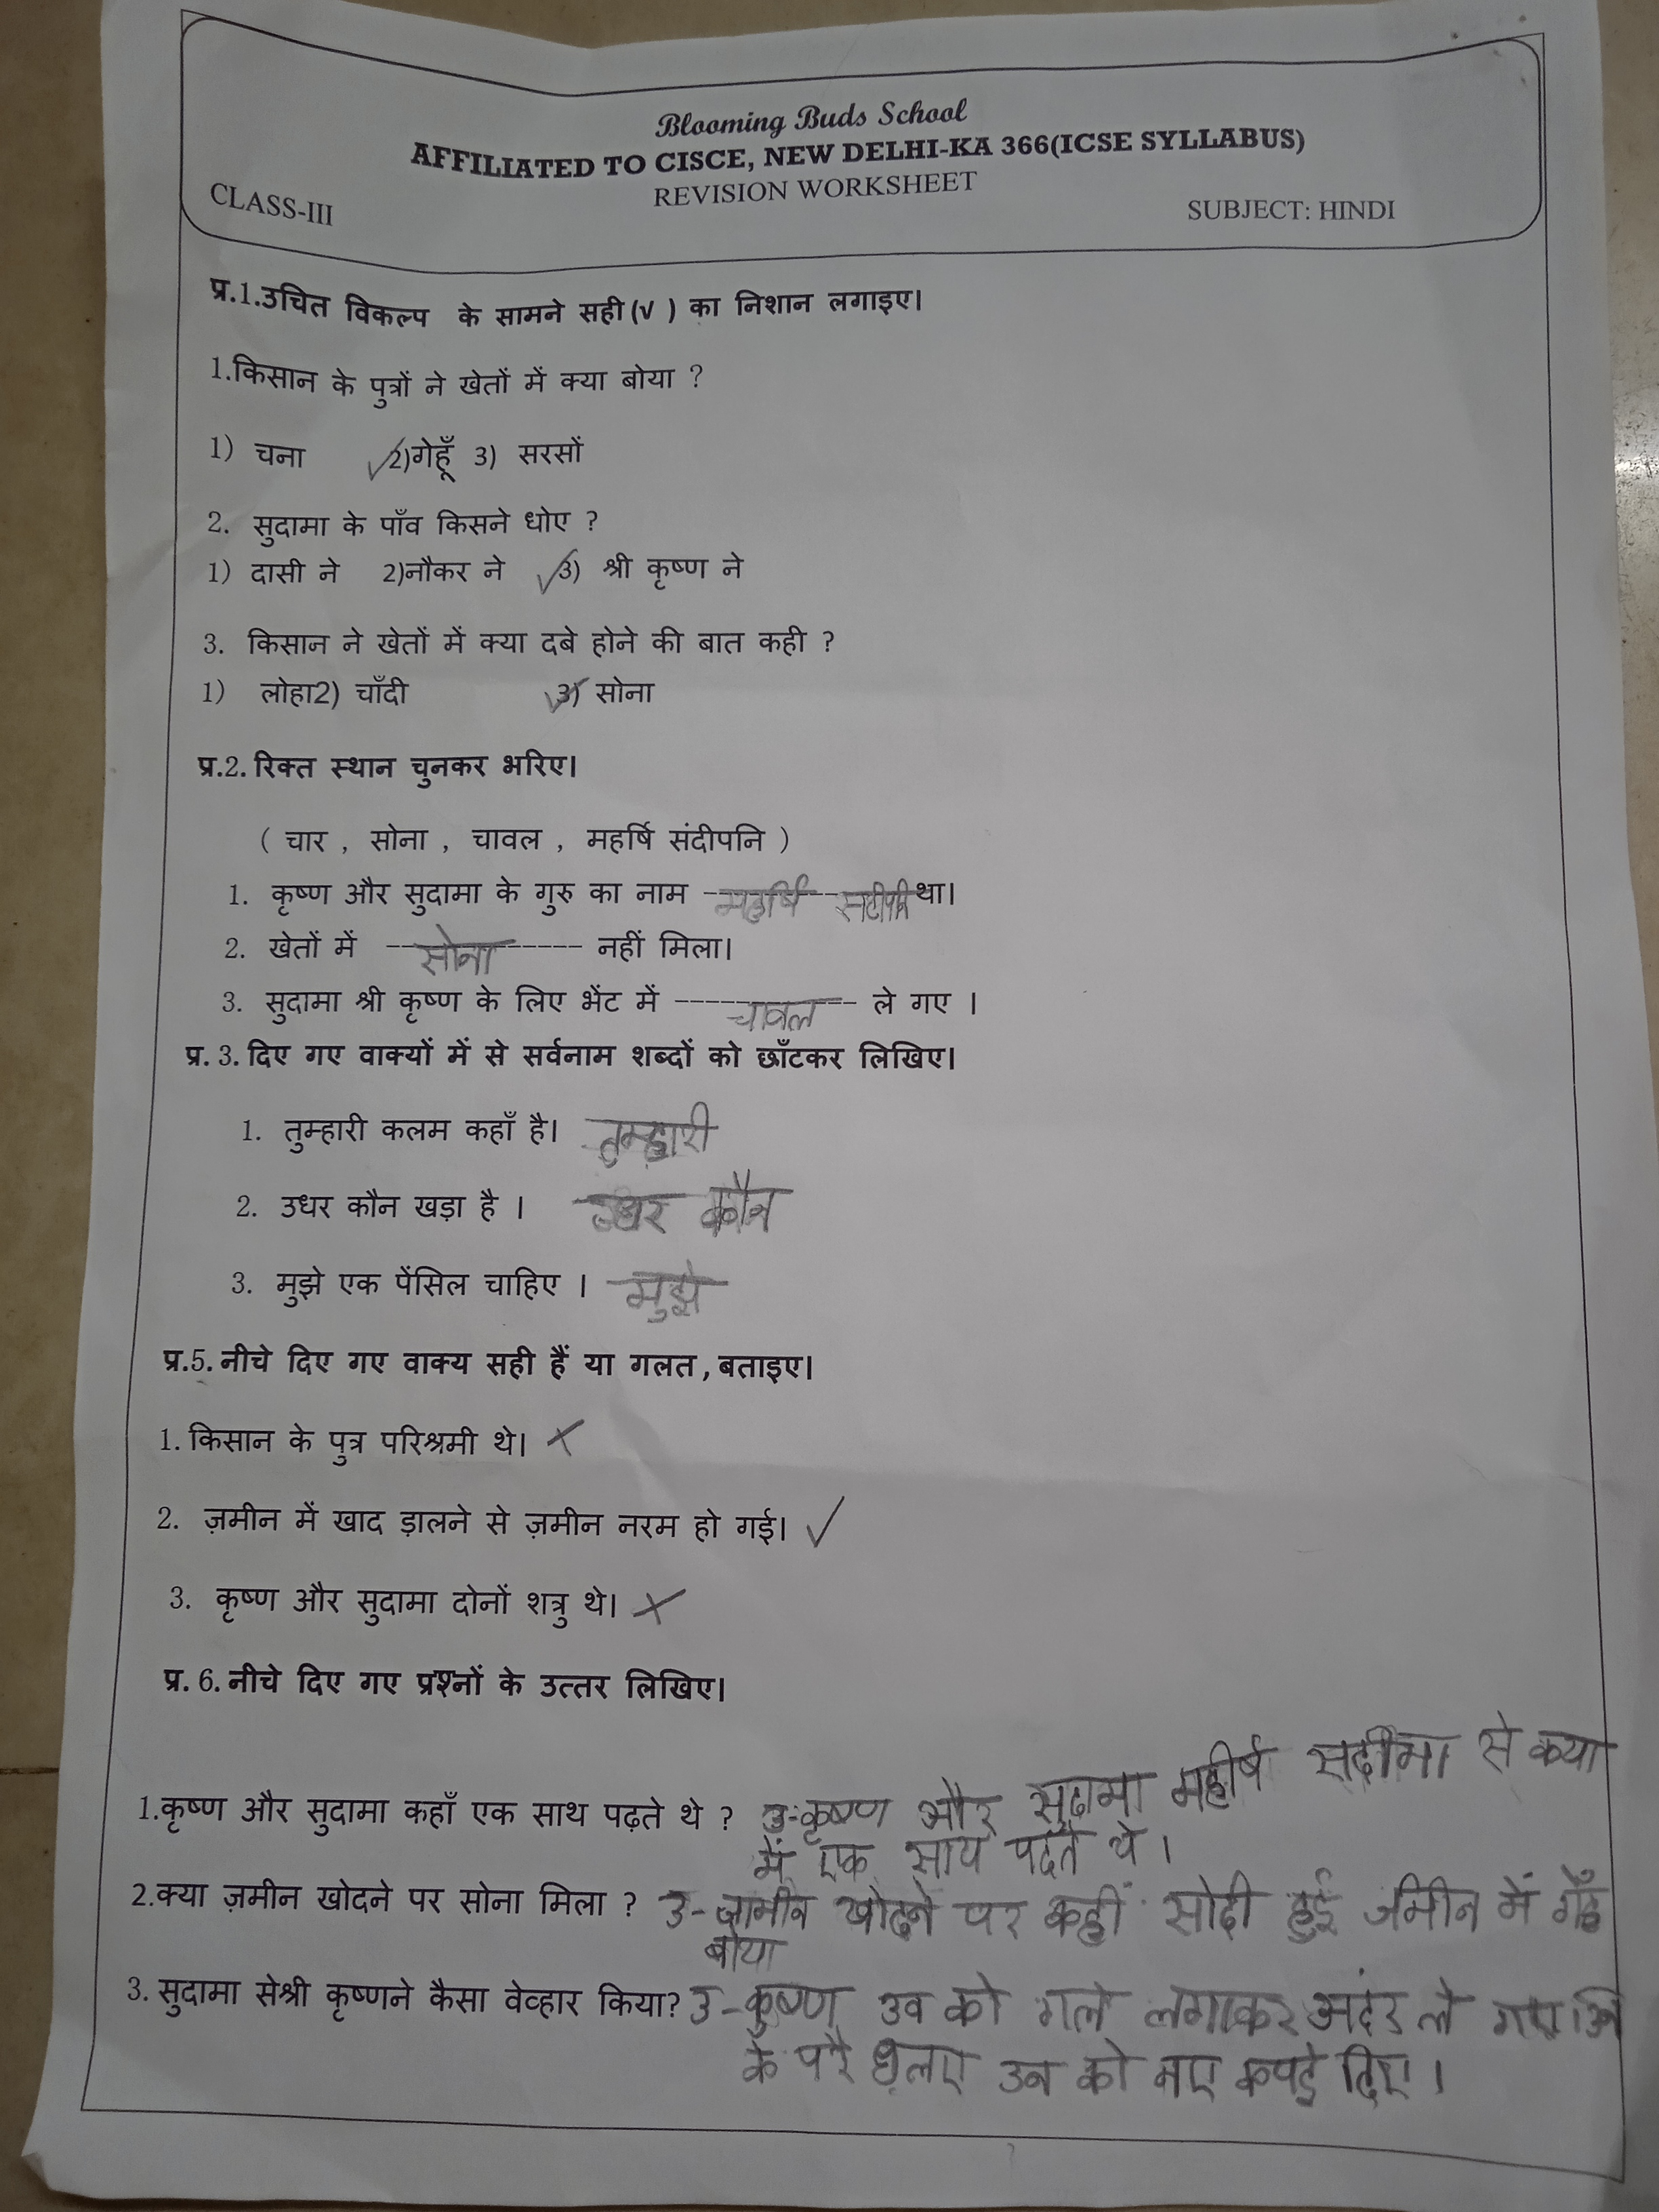 Blooming Buds School
AFFILIATED TO CISCE, NEW DELHI-KA 366(ICSE SYLLABUS)
REVISION WORKSHEET
CLASS-III SUBJECT: HINDI
प्र.1.उचित विकल्प के सामने सही(√ ) का निशान लगाइए।
1.किसान के पुत्रों ने खेतों में क्या बोया ?
1) चना ✓2)गेहूँ 3) सरसों
2. सुदामा के पाँव किसने धोए ?
1) दासी ने 2)नौकर ने ✓3) श्री कृष्ण ने
3. किसान ने खेतों में क्या दबे होने की बात कही ?
1) लोहा2) चाँदी ✓3) सोना
प्र.2. रिक्त स्थान चुनकर भरिए।
( चार , सोना , चावल , महर्षि संदीपनि )
1. कृष्ण और सुदामा के गुरु का नाम महर्षि था।
2. खेतों में सोना नहीं मिला।
3. सुदामा श्री कृष्ण के लिए भेंट में चावल ले गए ।
प्र. 3. दिए गए वाक्यों में से सर्वनाम शब्दों को छाँटकर लिखिए।
1. तुम्हारी कलम कहाँ है। तुम्हारी
2. उधर कौन खड़ा है । उधर कौन
3. मुझे एक पेंसिल चाहिए । मुझे
प्र.5. नीचे दिए गए वाक्य सही हैं या गलत , बताइए।
1. किसान के पुत्र परिश्रमी थे। ✗
2. ज़मीन में खाद ड़ालने से ज़मीन नरम हो गई। ✓
3. कृष्ण और सुदामा दोनों शत्रु थे। ✗
प्र. 6. नीचे दिए गए प्रश्नों के उत्तर लिखिए।
1.कृष्ण और सुदामा कहाँ एक साथ पढ़ते थे ? उ-कृष्ण और सुदामा महर्षि से कया
में एक साथ पढते थे ।
2.क्या ज़मीन खोदने पर सोना मिला ? उ- खोदने पर कहीं सोदी हुई जमीन में
बोया
3. सुदामा सेश्री कृष्णने कैसा वेव्हार किया? उ-कृष्ण उव को गले लगाकर अदंर ले गए।उन
के परै उन को नए कपड़े दिए ।